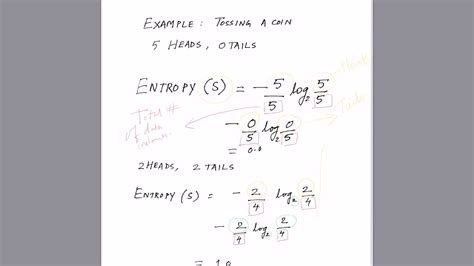 EXAMPLE: TOSSING A COIN
5 HEADS, 0 TAILS
ENTROPY (S) = - 5/5 log₂ 5/5
Heads
Tails
Total #
of data
- 0/5 log₂ 0/5
= 0.0
2 HEADS, 2 TAILS
ENTROPY (S) = - 2/4 log₂ 2/4
- 2/4 log₂ 2/4